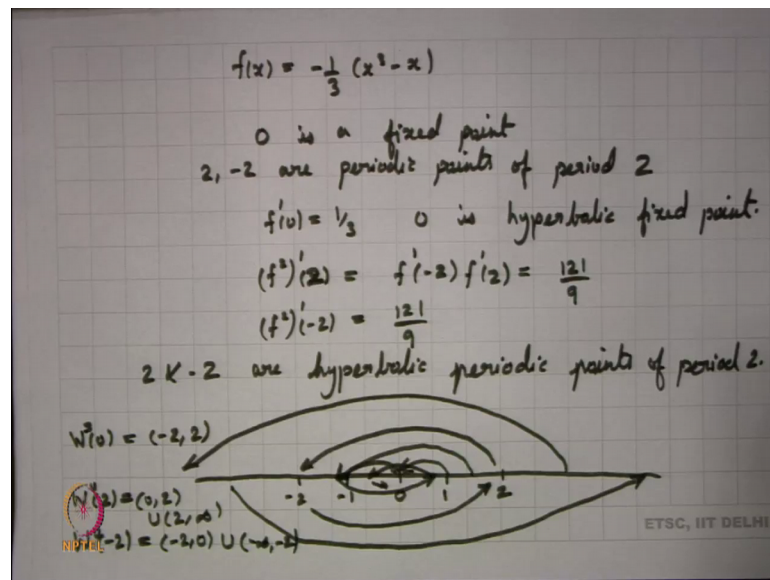 f(x) = -1/3 (x³ - x)
0 is a fixed point
2, -2 are periodic points of period 2
f'(0) = 1/3 0 is hyperbolic fixed point.
(f²)'(2) = f'(-2) f'(2) = 121/9
(f²)'(-2) = 121/9
2 & -2 are hyperbolic periodic points of period 2.
Wˢ(0) = (-2, 2)
-2 -1 0 1 2
Wᵘ(2) = (0, 2)
∪ (2, ∞)
(-2) = (-2, 0) ∪ (-∞, -2)
NPTEL
ETSC, IIT DELHI